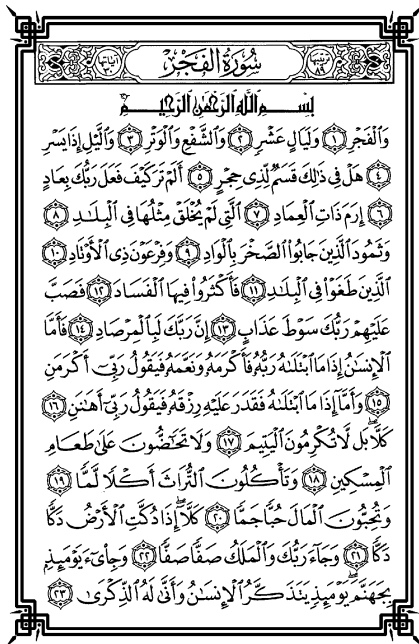 ترتيبها ٨٩ سُورَةُ الفَجْرِ آياتها ٣٠
بِسْمِ اللَّهِ الرَّحْمَٰنِ الرَّحِيمِ
وَالْفَجْرِ ١ وَلَيَالٍ عَشْرٍ ٢ وَالشَّفْعِ وَالْوَتْرِ ٣ وَالَّيْلِ إِذَا يَسْرِ
٤ هَلْ فِي ذَٰلِكَ قَسَمٌ لِّذِي حِجْرٍ ٥ أَلَمْ تَرَ كَيْفَ فَعَلَ رَبُّكَ بِعَادٍ
٦ إِرَمَ ذَاتِ الْعِمَادِ ٧ الَّتِي لَمْ يُخْلَقْ مِثْلُهَا فِي الْبِلَٰدِ ٨
وَثَمُودَ الَّذِينَ جَابُوا الصَّخْرَ بِالْوَادِ ٩ وَفِرْعَوْنَ ذِي الْأَوْتَادِ ١٠
الَّذِينَ طَغَوْا فِي الْبِلَٰدِ ١١ فَأَكْثَرُوا فِيهَا الْفَسَادَ ١٢ فَصَبَّ
عَلَيْهِمْ رَبُّكَ سَوْطَ عَذَابٍ ١٣ إِنَّ رَبَّكَ لَبِالْمِرْصَادِ ١٤ فَأَمَّا
الْإِنسَٰنُ إِذَا مَا ابْتَلَىٰهُ رَبُّهُ فَأَكْرَمَهُ وَنَعَّمَهُ فَيَقُولُ رَبِّي أَكْرَمَنِ
١٥ وَأَمَّا إِذَا مَا ابْتَلَىٰهُ فَقَدَرَ عَلَيْهِ رِزْقَهُ فَيَقُولُ رَبِّي أَهَٰنَنِ ١٦
كَلَّا ۖ بَل لَّا تُكْرِمُونَ الْيَتِيمَ ١٧ وَلَا تَحَٰضُّونَ عَلَىٰ طَعَامِ
الْمِسْكِينِ ١٨ وَتَأْكُلُونَ التُّرَاثَ أَكْلًا لَّمًّا ١٩
وَتُحِبُّونَ الْمَالَ حُبًّا جَمًّا ٢٠ كَلَّا ۖ إِذَا دُكَّتِ الْأَرْضُ دَكًّا
دَكًّا ٢١ وَجَاءَ رَبُّكَ وَالْمَلَكُ صَفًّا صَفًّا ٢٢ وَجِاْيءَ يَوْمَئِذٍ
بِجَهَنَّمَ ۚ يَوْمَئِذٍ يَتَذَكَّرُ الْإِنسَٰنُ وَأَنَّىٰ لَهُ الذِّكْرَىٰ ٢٣